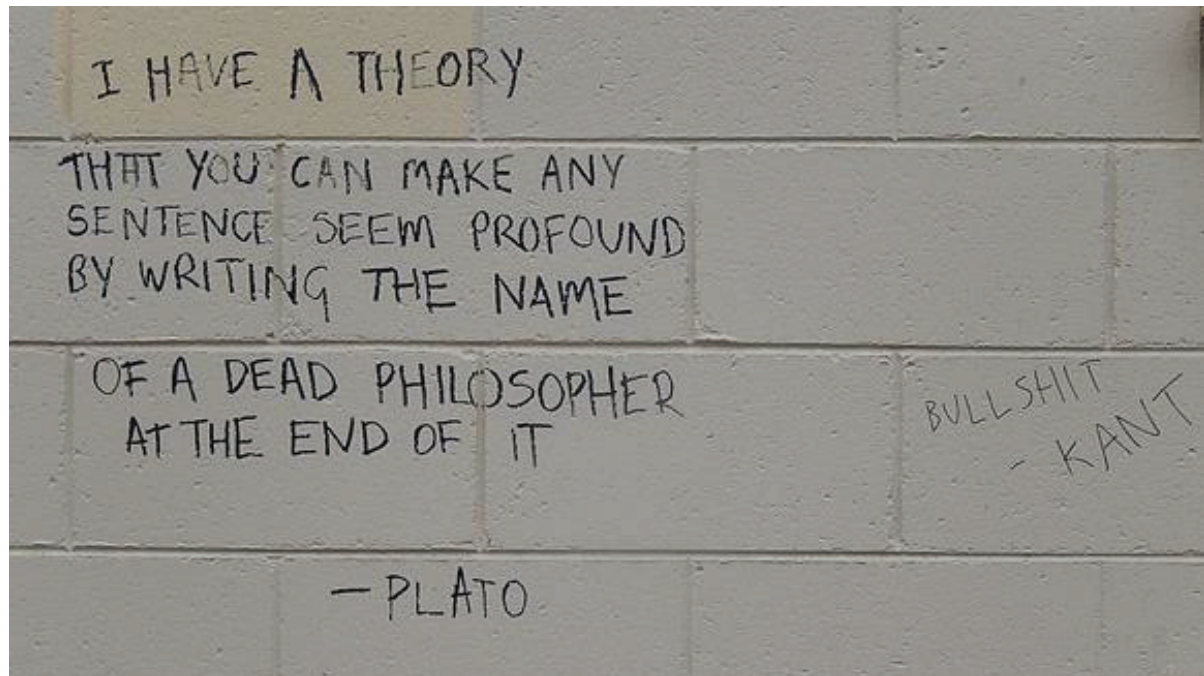 I HAVE A THEORY
THAT YOU CAN MAKE ANY
SENTENCE SEEM PROFOUND
BY WRITING THE NAME
OF A DEAD PHILOSOPHER
AT THE END OF IT
- PLATO
BULLSHIT
- KANT